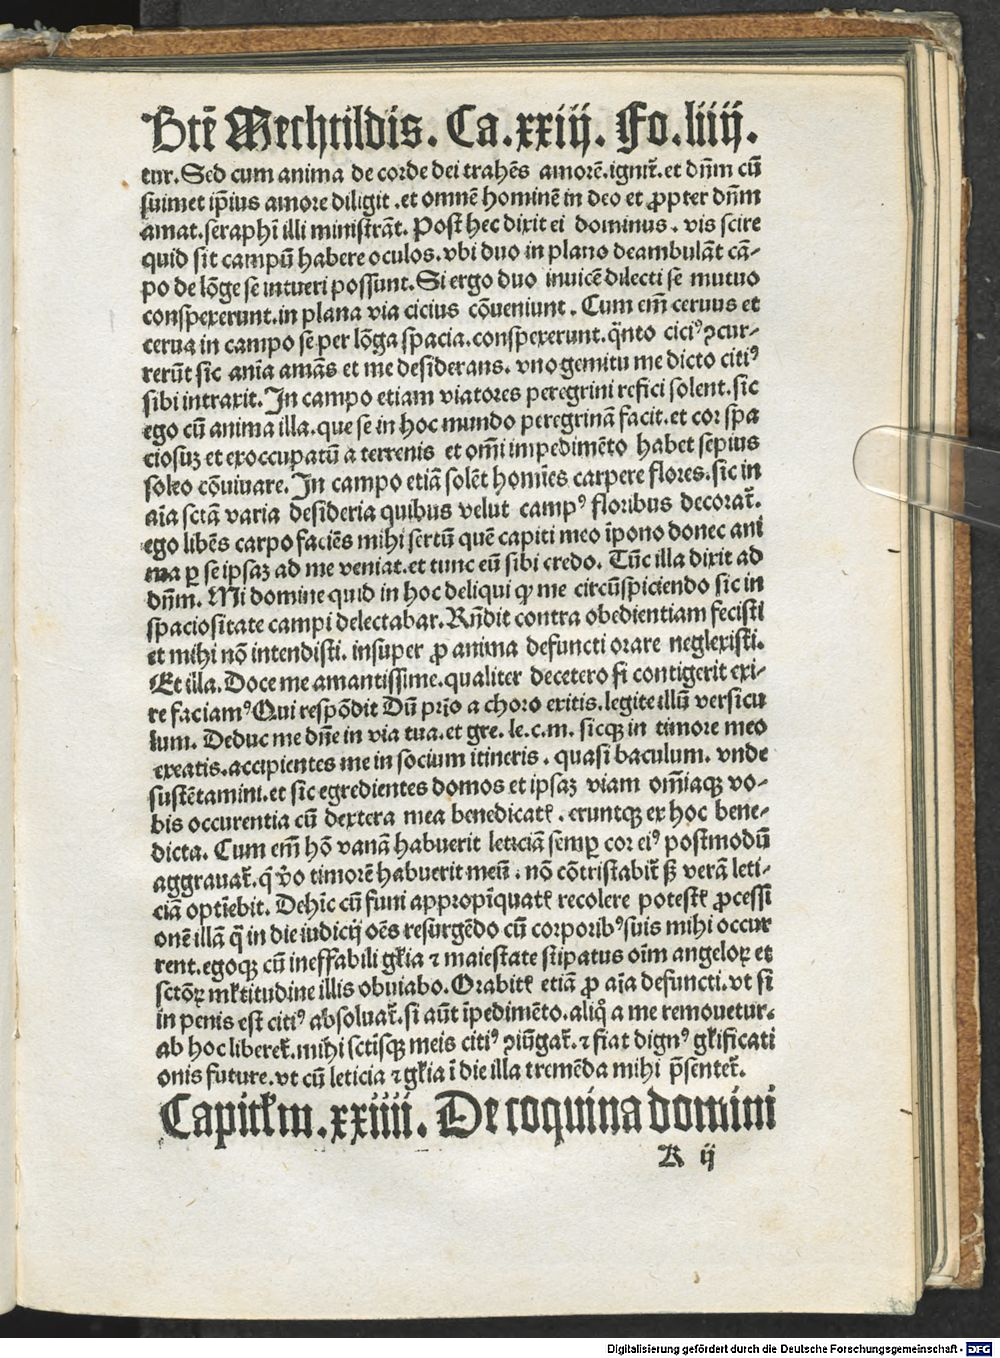 Btē Mechtildis. Ca.xxiij. Fo.liiij.
tur. Sed cum anima de corde dei trahēs amorē.ignit᷑. et dn̄m cū
suimet ip̄ius amore diligit .et omnē hominē in deo et ꝓpter dn̄m
amat. seraphī illi ministrāt. Post hec dixit ei dominus. vis scire
quid sit campū habere oculos. vbi duo in plano deambulāt cā-
po de lōge se intueri possunt. Si ergo duo inuicē dilecti se mutuo
conspexerunt. in plana via cicius cōueniunt. Cum em̄ ceruus et
cerua in campo se per lōga spacia. conspexerunt. q̄nto ciciꝰ ꝯcur-
rerūt sic anīa amās et me desiderans. vno gemitu me dicto citiꝰ
sibi intraxit. In campo etiam viatores peregrini refici solent. sic
ego cū anima illa. que se in hoc mundo peregrinā facit. et cor spa
ciosuꝫ et exoccupatū a terrenis et om̄i impedimēto habet sepius
soleo cōuiuare. In campo etiā solēt homīes carpere flores. sic in
aīa sctā varia desideria quibus velut campꝰ floribus decorat᷑.
ego libēs carpo faciēs mihi sertū quē capiti meo īpono donec ani
ma ꝑ se ipsaꝫ ad me veniat. et tunc eū sibi credo. Tūc illa dixit ad
dn̄m. Mi domine quid in hoc deliqui ꝙ me circūspiciendo sic in
spaciositate campi delectabar. Rn̄dit contra obedientiam fecisti
et mihi nō intendisti. insuper ꝓ anima defuncti orare neglexisti.
Et illa. Doce me amantissime. qualiter decetero si contigerit exi-
re faciamꝰ Qui respōdit Dū prīo a choro exitis. legite illū versicu
lum. Deduc me dn̄e in via tua. et gre. le. c. m. sicqꝫ in timore meo
exeatis. accipientes me in socium itineris. quasi baculum. vnde
sustētamini. et sic egredientes domos et ipsaꝫ viam om̄iaqꝫ vo-
bis occurentia cū dextera mea benedicatꝭ. eruntqꝫ ex hoc bene-
dicta. Cum em̄ hō vanā habuerit leticiā semꝑ cor eiꝰ postmodū
aggrauat᷑. q̄ v̄o timorē habuerit meū. nō cōtristabit᷑ sꝫ verā leti-
ciā optīebit. Dehīc cū funi appropīquatꝭ recolere potestꝭ ꝓcessi
onē illā q̄ in die iudicij oēs resurgēdo cū corporibꝰ suis mihi occur
rent. egoqꝫ cū ineffabili gl̄ia ⁊ maiestate stipatus oīm angeloꝝ et
sctōꝝ ml̄titudine illis obuiabo. Orabitꝭ etiā ꝓ aīa defuncti. vt si
in penis est citiꝰ absoluat᷑. si aūt īpedimēto. aliq̊ a me remouetur.
ab hoc liberet᷑. mihi sctīsqꝫ meis citiꝰ ꝯiūgat᷑. ⁊ fiat dignꝰ gl̄ificati
onis future. vt cū leticia ⁊ gl̄ia ī die illa tremēda mihi p̄sentet᷑.
Capitl̄m. xxiiii. De coquina domini
K ij
Digitalisierung gefördert durch die Deutsche Forschungsgemeinschaft - DFG